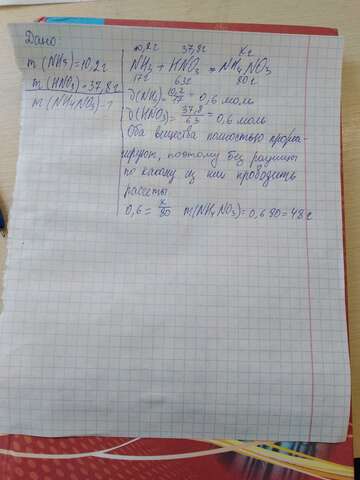 Дано:
m(NH3)=10,2г
m(HNO3)=37,8г
m(NH4NO3)-?
10,2г 37,8г xг
NH3 + HNO3 = NH4NO3
17г 63г 80г
ν(NH3)=10,2/17=0,6 моль
ν(HNO3)=37,8/63=0,6 моль
Оба вещества полностью прореа-
гируют, поэтому без разницы
по какому из них проводить
рассеты
0,6=x/80 m(NH4NO3)=0,6·80=48г